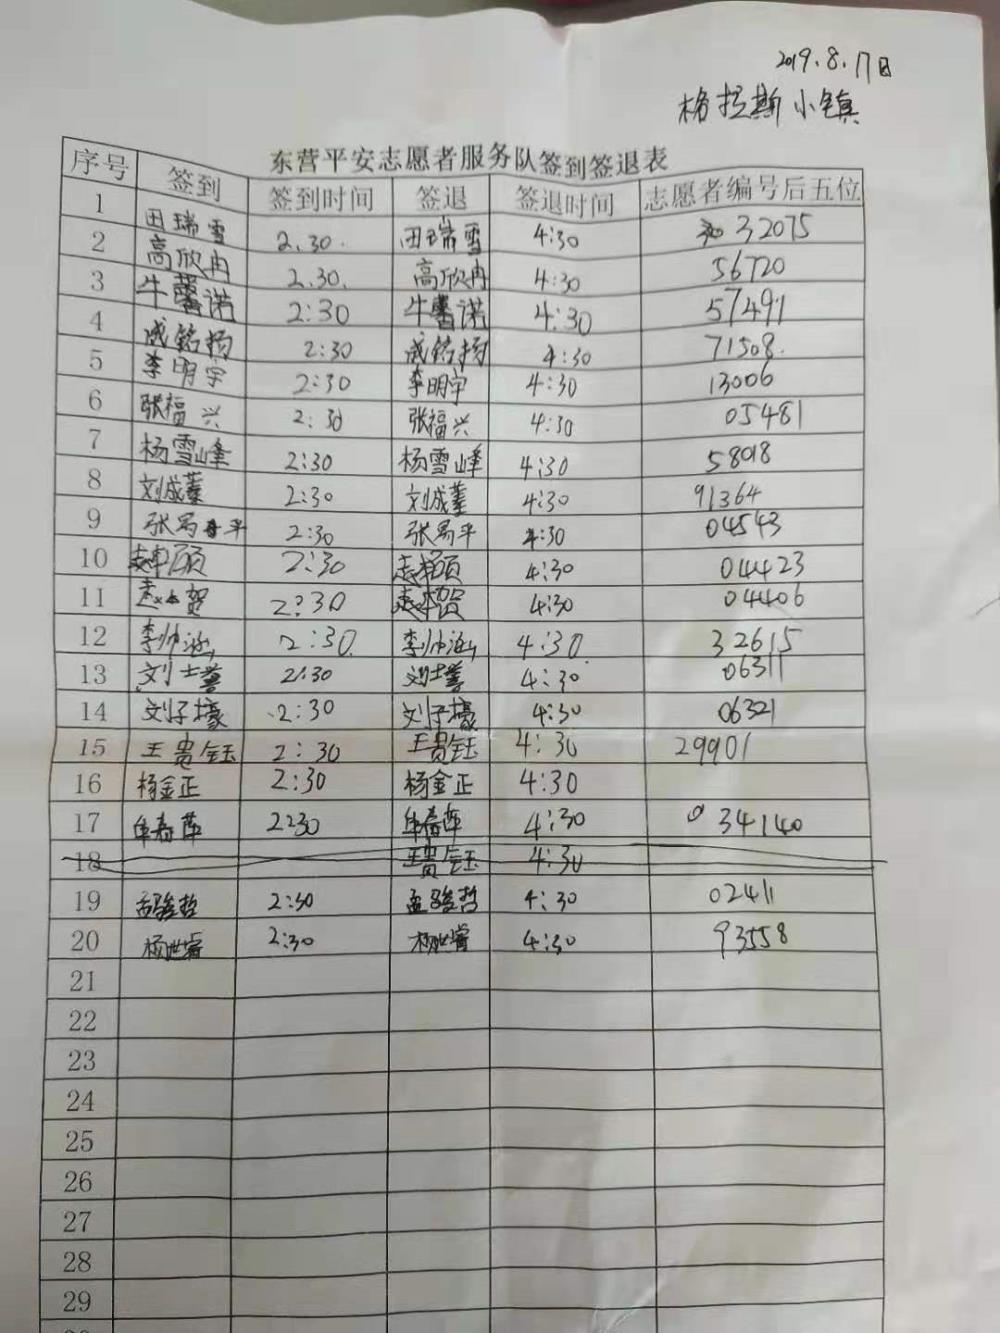 2019.8.17日
格拉斯小镇
东营平安志愿者服务队签到签退表
序号 签到 签到时间 签退 签退时间 志愿者编号后五位
1 田瑞雪 2.30. 田瑞雪 4:30 32075
2 高欣冉 2.30. 高欣冉 4:30 56720
3 牛馨诺 2:30 牛馨诺 4:30 57491
4 戚铭扬 2:30 戚铭扬 4:30 71508.
5 李明宇 2:30 李明宇 4:30 13006
6 张福兴 2:30 张福兴 4:30 05481
7 杨雪峰 2:30 杨雪峰 4:30 58018
8 刘成蓁 2:30 刘成蓁 4:30 91364
9 张易平 2:30 张易平 4:30 04543
10 2:30 4:30 04423
11 赵本贺 2:30 赵本贺 4:30 04406
12 李帅涵 2:30. 李帅涵 4:30. 32615
13 刘士誉 2:30 刘士誉 4:30 06311
14 刘子壕 2:30 刘子壕 4:30 06321
15 王贵钰 2:30 王贵钰 4:30 29901
16 杨金正 2:30 杨金正 4:30
17 牟春萍 2:30 牟春萍 4:30 34140
18 王贵钰 4:30
19 孟骏哲 2:30 孟骏哲 4:30 02411
20 杨世睿 2:30 杨世睿 4:30 93558
21
22
23
24
25
26
27
28
29